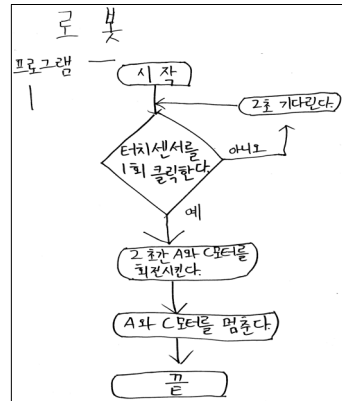 로봇
프로그램
시작
2초 기다린다.
터치센서를
1회 클릭한다.
아니오
예
2초간 A와 C모터를
회전시킨다.
A와 C모터를 멈춘다.
끝